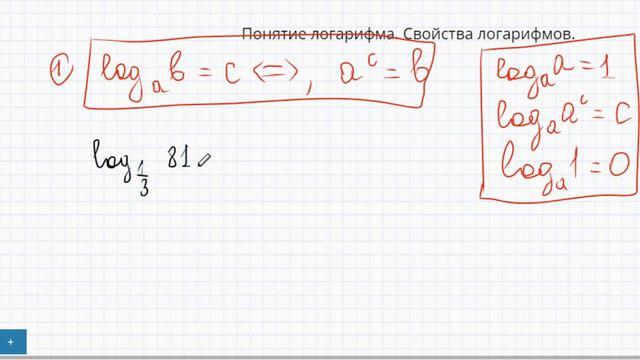 Понятие логарифма. Свойства логарифмов.
① logₐ b = c <=>, aᶜ = b
logₐ a = 1
logₐ aᶜ = c
logₐ 1 = 0
log_{1/3} 81
+